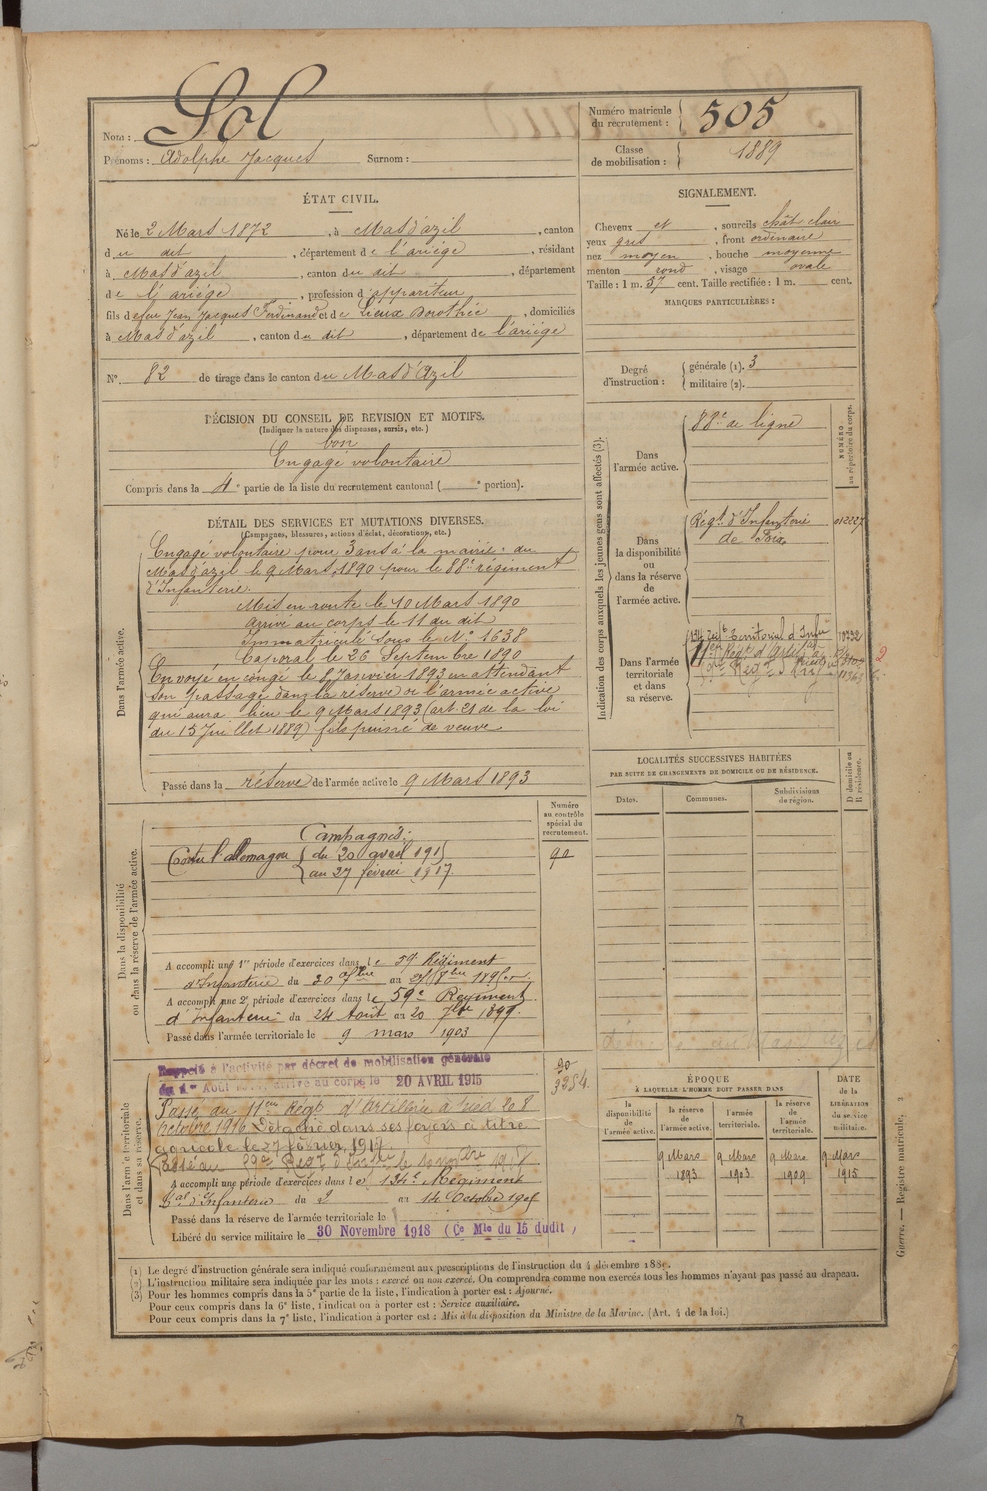 Nom : Sol
Prénoms : Adolphe Jacques Surnom :
Numéro matricule du recrutement : 505
Classe de mobilisation : 1889
ÉTAT CIVIL.
Né le 2 Mars 1872, à Mas d'azil, canton
du dit, département de l'ariège, résidant
à Mas d'azil, canton du dit, département
de l'ariège, profession d'appariteur
fils de feu Jean Jacques Ferdinand et de Lieux Dorothée, domiciliés
à Mas d'azil, canton du dit, département de l'ariège
N° 82 de tirage dans le canton du Mas d'Azil
SIGNALEMENT.
Cheveux et, sourcils chât clair
yeux gris, front ordinaire
nez moyen, bouche moyenne
menton rond, visage ovale
Taille : 1 m. 57 cent. Taille rectifiée : 1 m. cent.
MARQUES PARTICULIÈRES :
Degré d'instruction : générale (1). 3
militaire (2).
DÉCISION DU CONSEIL DE REVISION ET MOTIFS.
(Indiquer la nature des dispenses, sursis, etc.)
bon
Engagé volontaire
Compris dans la 4e partie de la liste du recrutement cantonal ( e portion).
DÉTAIL DES SERVICES ET MUTATIONS DIVERSES.
(Campagnes, blessures, actions d'éclat, décorations, etc.)
Dans l'armée active.
Engagé volontaire pour 3 ans à la mairie du
Mas d'azil le 9 Mars 1890 pour le 88e régiment
d'Infanterie.
Mis en route le 10 Mars 1890
arrivé au corps le 11 du dit
Immatriculé sous le N° 1638
Caporal le 26 Septembre 1890
Envoyé en congé le 8 Janvier 1893 en attendant
son passage dans la réserve de l'armée active
qui aura lieu le 9 Mars 1893 (art. 21 de la loi
du 15 Juillet 1889) fils puiné de veuve
Passé dans la réserve de l'armée active le 9 Mars 1893
Indication des corps auxquels les jeunes gens sont affectés (3).
NUMÉRO au répertoire du corps.
Dans l'armée active.
88e de ligne
Dans la disponibilité ou dans la réserve de l'armée active.
Régt d'Infanterie 012227
de Foix
Dans l'armée territoriale et dans sa réserve.
134 Régt territorial d'Infie
LOCALITÉS SUCCESSIVES HABITÉES
PAR SUITE DE CHANGEMENTS DE DOMICILE OU DE RÉSIDENCE.
Dates. Communes. Subdivisions de région. D domicile ou R résidence.
Numéro au contrôle spécial du recrutement.
90
Dans la disponibilité ou dans la réserve de l'armée active.
Campagnes :
Contre l'allemagne du 20 avril 1915
au 27 février 1917
A accompli une 1re période d'exercices dans le 59 Régiment
d'Infanterie du 30 au 1895
A accompli une 2e période d'exercices dans le 59e Régiment
d'Infanterie du 24 Aout au 20 7bre 1899.
Passé dans l'armée territoriale le 9 mars 1903
Dans l'armée territoriale et dans sa réserve.
Rappelé à l'activité par décret de mobilisation générale
du 1er Août, arrivé au corps le 20 AVRIL 1915
Passé au 11eme Régt d'Artillerie à pied le 8
octobre 1916 Détaché dans ses foyers à titre
agricole le 27 février 1917.
A accompli une période d'exercices dans le 134e Régiment
d'Infanterie du 2 au 14 Octobre
Passé dans la réserve de l'armée territoriale le
Libéré du service militaire le 30 Novembre 1918 (Ce Mle du 15 dudit)
ÉPOQUE
À LAQUELLE L'HOMME DOIT PASSER DANS
la disponibilité de l'armée active. la réserve de l'armée active. l'armée territoriale. la réserve de l'armée territoriale.
DATE de la LIBÉRATION du service militaire.
9 Mars 9 Mars 9 Mars 9 Mars
1893 1903 1909 1915
(1) Le degré d'instruction générale sera indiqué conformément aux prescriptions de l'instruction du 4 décembre 1889.
(2) L'instruction militaire sera indiquée par les mots : exercé ou non exercé. On comprendra comme non exercés tous les hommes n'ayant pas passé au drapeau.
(3) Pour les hommes compris dans la 5e partie de la liste, l'indication à porter est : Ajourné.
Pour ceux compris dans la 6e liste, l'indication à porter est : Service auxiliaire.
Pour ceux compris dans la 7e liste, l'indication à porter est : Mis à la disposition du Ministre de la Marine. (Art. 4 de la loi.)
Guerre. — Registre matricule. 2